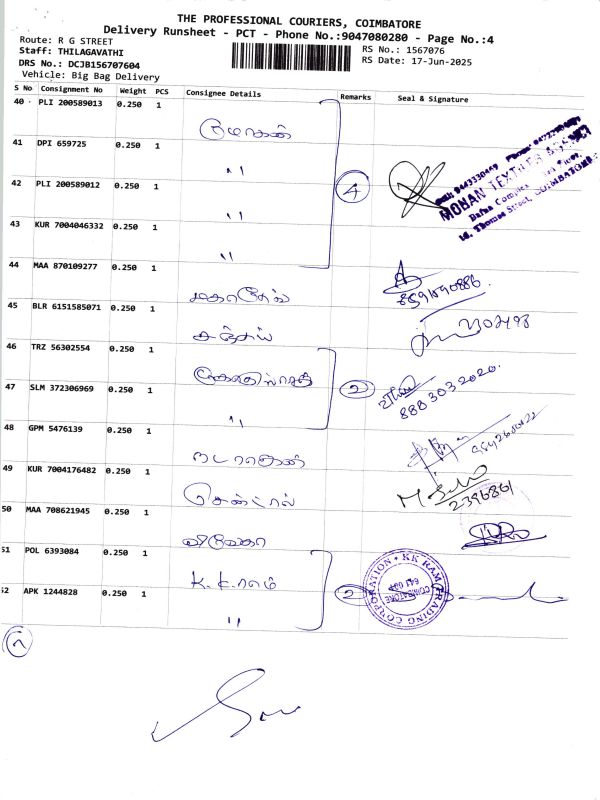 THE PROFESSIONAL COURIERS, COIMBATORE
Delivery Runsheet - PCT - Phone No.:9047080280 - Page No.:4
Route: R G STREET
RS No.: 1567076
Staff: THILAGAVATHI
RS Date: 17-Jun-2025
DRS No.: DCJB156707604
Vehicle: Big Bag Delivery
S No Consignment No Weight PCS Consignee Details Remarks Seal & Signature
40 PLI 200589013 0.250 1
41 DPI 659725 0.250 1 "
4
MOHAN TEXTILE
42 PLI 200589012 0.250 1 "
43 KUR 7004046332 0.250 1 "
44 MAA 870109277 0.250 1
45 BLR 6151585071 0.250 1 சஞ்சய்
46 TRZ 56302554 0.250 1
2
8883032020.
47 SLM 372306969 0.250 1 "
48 GPM 5476139 0.250 1 நடராஜன்
49 KUR 7004176482 0.250 1 சென்ட்ரல்
2396861
50 MAA 708621945 0.250 1
51 POL 6393084 0.250 1 K.K.ராம்
2
KK RAM TRADING CORPORATION
COIMBATORE
52 APK 1244828 0.250 1 "